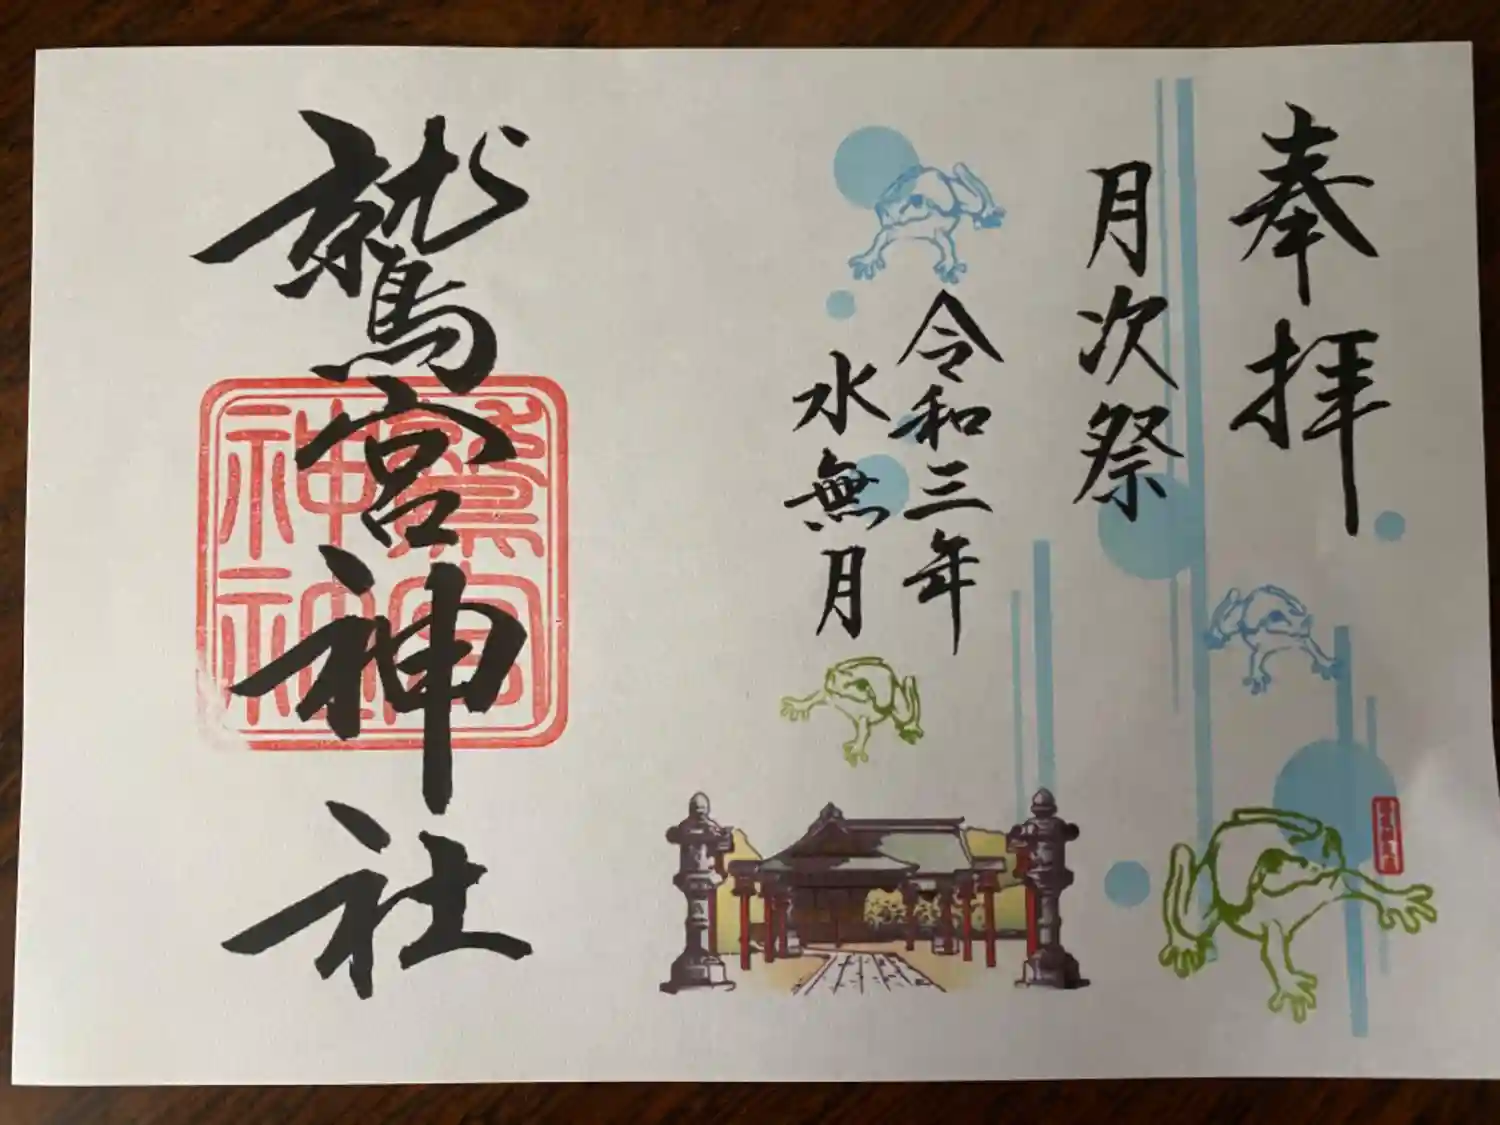 奉拝
月次祭
令和三年
水無月
鷲宮神社
鷲宮
神社